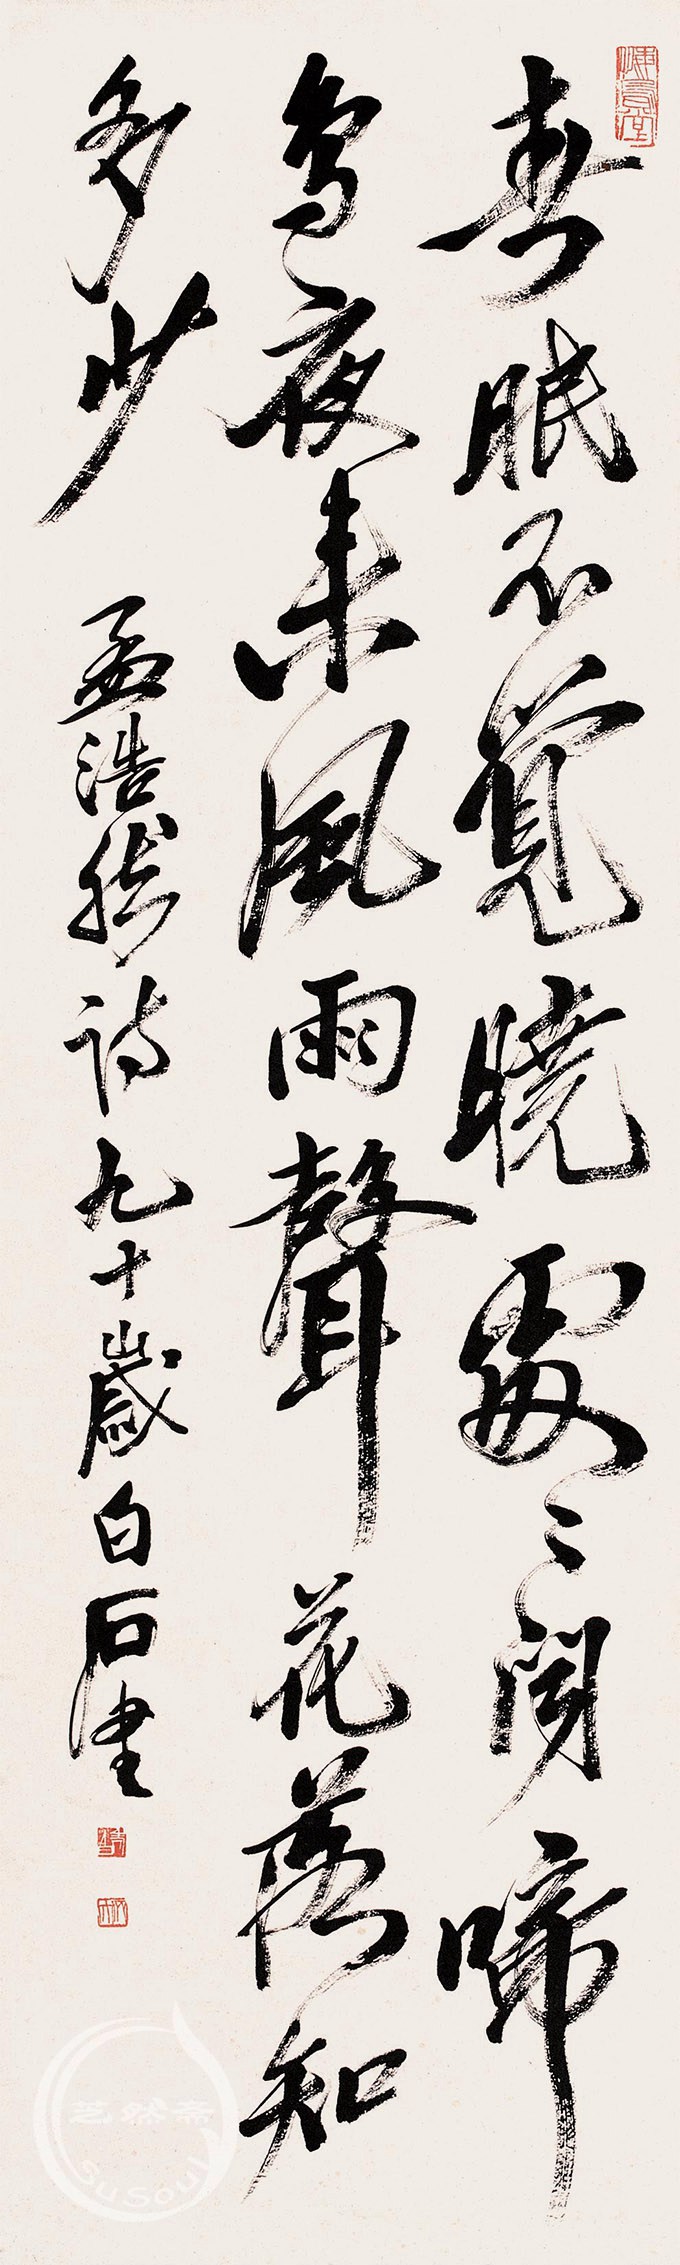 春眠不覺曉處〻聞啼
鳥夜来風雨聲花落知
多少
孟浩然詩九十歲白石書
SuSoul